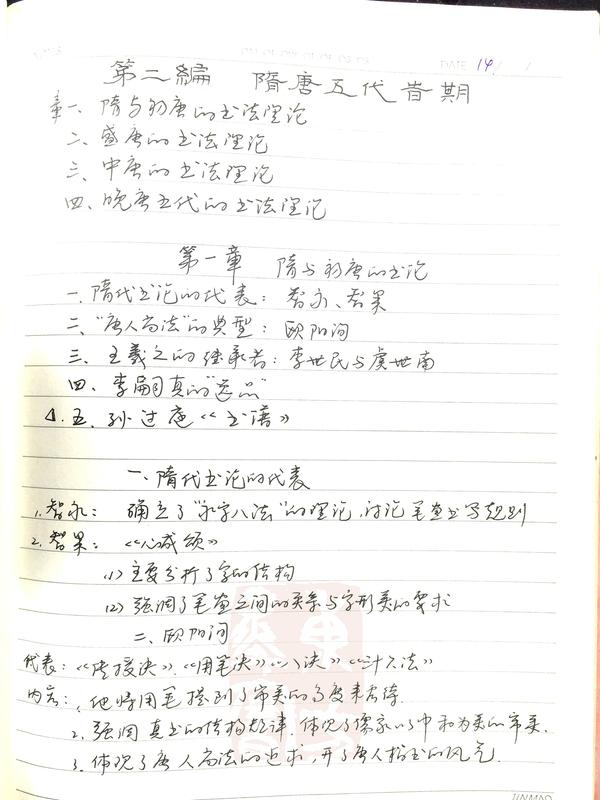 DATE 14 / /
第二编 隋唐五代时期
章一、隋与初唐的书法理论
二、盛唐的书法理论
三、中唐的书法理论
四、晚唐五代的书法理论
第一章 隋与初唐的书论
一、隋代书论的代表：智永、智果
二、“唐人尚法”的典型：欧阳询
三、王羲之的继承者：李世民与虞世南
四、李嗣真的“逸品”
△.五、孙过庭《书谱》
一、隋代书论的代表
1.智永：确立了“永字八法”的理论，讨论笔画书写规则
2.智果：《心成颂》
(1)主要分析了字的结构
(2)强调了笔画之间的关系与字形美的要求
二、欧阳询
代表：《传授诀》、《用笔论》《八诀》《三十六法》
内容：1.他将用笔提到了审美的高度来看待
2.强调真书的结构规律，体现了儒家以中和为美的审美.
3.体现了唐人尚法的追求，开了唐人楷书的风气.